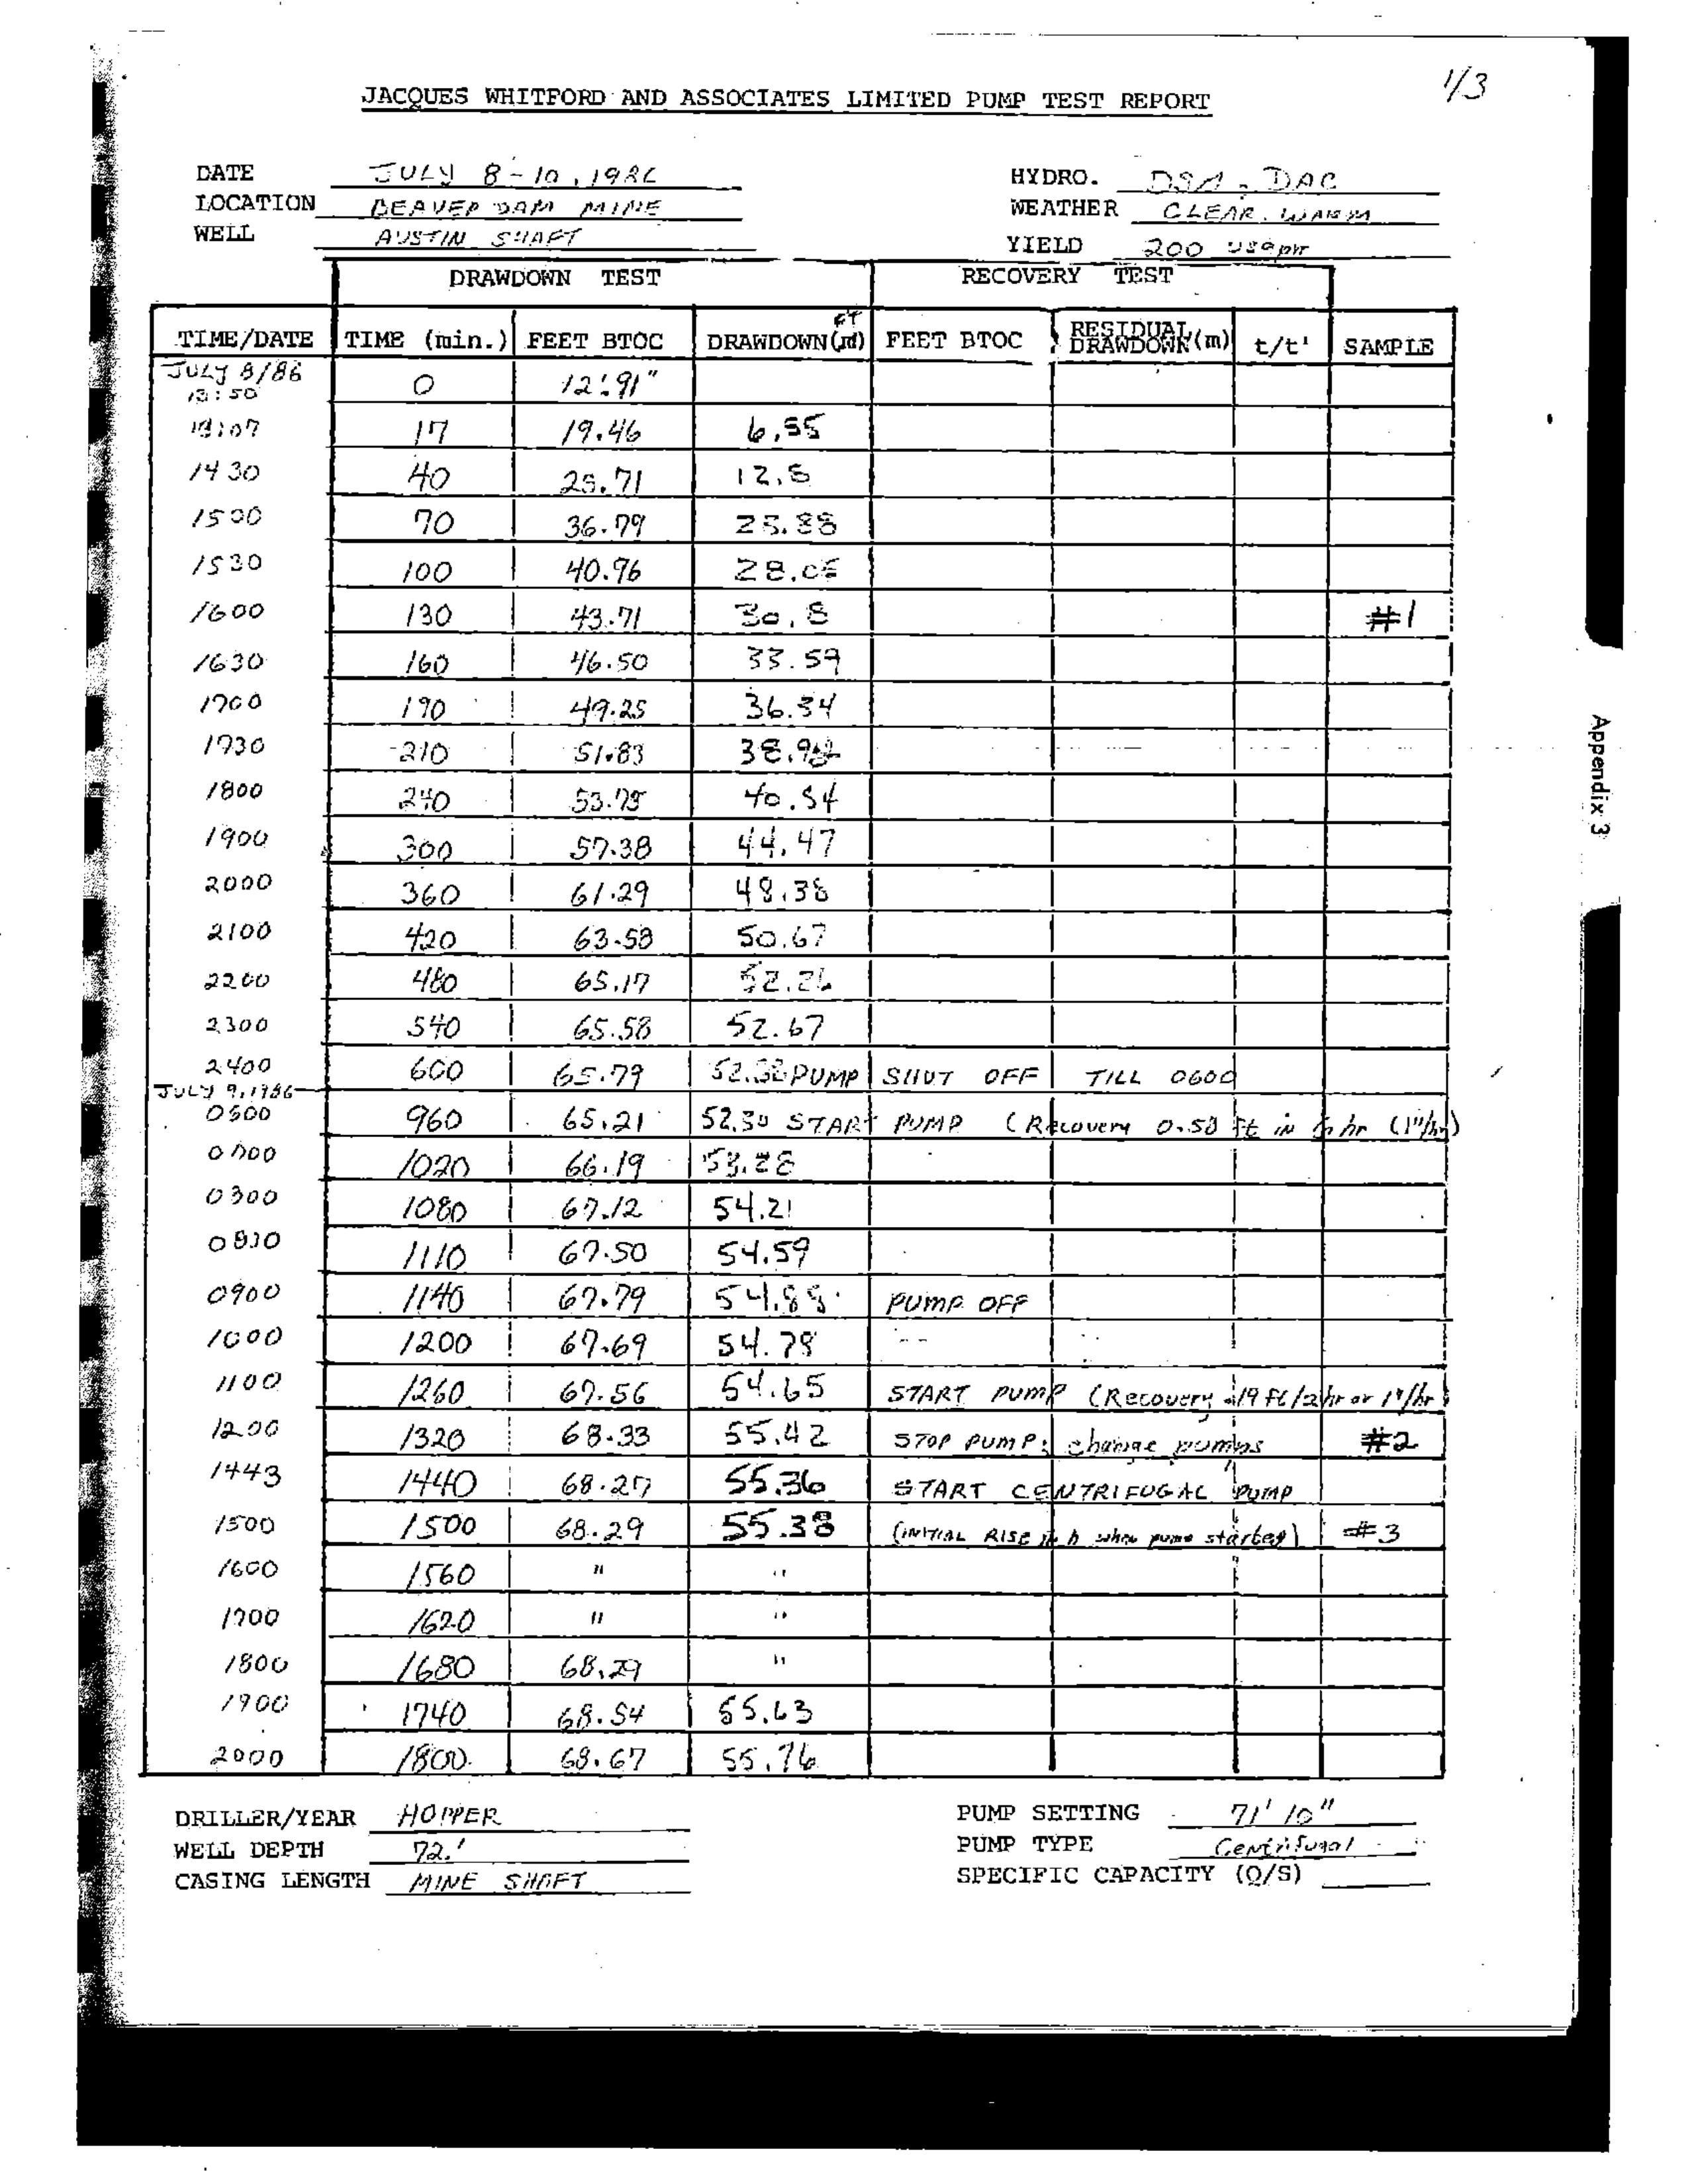 1/3
JACQUES WHITFORD AND ASSOCIATES LIMITED PUMP TEST REPORT
DATE JULY 8-10, 1986 HYDRO. DAC
LOCATION BEAVER DAM MINE WEATHER CLEAR, WARM
WELL AUSTIN SHAFT YIELD 200 usgpm
DRAWDOWN TEST RECOVERY TEST
TIME/DATE TIME (min.) FEET BTOC DRAWDOWN (m) FT FEET BTOC RESIDUAL DRAWDOWN (m) t/t' SAMPLE
JULY 8/86
13:50 0 12'.91"
17 19.46 6.55
1430 40 25.71 12.8
1500 70 36.79 23.88
1530 100 40.96 28.05
1600 130 43.71 30.8 #1
1630 160 46.50 33.59
1700 190 49.25 36.34
1730 210 51.83 38.92
1800 240 53.75 40.84
1900 300 57.38 44.47
2000 360 61.29 48.38
2100 420 63.58 50.67
2200 480 65.17 52.26
2300 540 65.58 52.67
2400 600 65.79 52.88 PUMP SHUT OFF TILL 0600
JULY 9, 1986
0600 960 65.21 52.30 START PUMP (Recovery 0.58 ft in 6 hr (1"/hr)
0700 1020 66.19 53.28
0800 1080 67.12 54.21
0830 1110 67.50 54.59
0900 1140 67.79 54.88 PUMP OFF
1000 1200 67.69 54.78 --
1100 1260 67.56 54.65 START PUMP (Recovery .19 ft/2hr or 1"/hr)
1200 1320 68.33 55.42 STOP PUMP; change pumps #2
1443 1440 68.27 55.36 START CENTRIFUGAL PUMP
1500 1500 68.29 55.38 (INITIAL RISE in h when pump started) #3
1600 1560 " "
1700 1620 " "
1800 1680 68.29 "
1900 1740 68.54 55.63
2000 1800 68.67 55.76
DRILLER/YEAR HOPPER PUMP SETTING 71' 10"
WELL DEPTH 72.' PUMP TYPE Centrifugal
CASING LENGTH MINE SHAFT SPECIFIC CAPACITY (Q/S)
Appendix 3